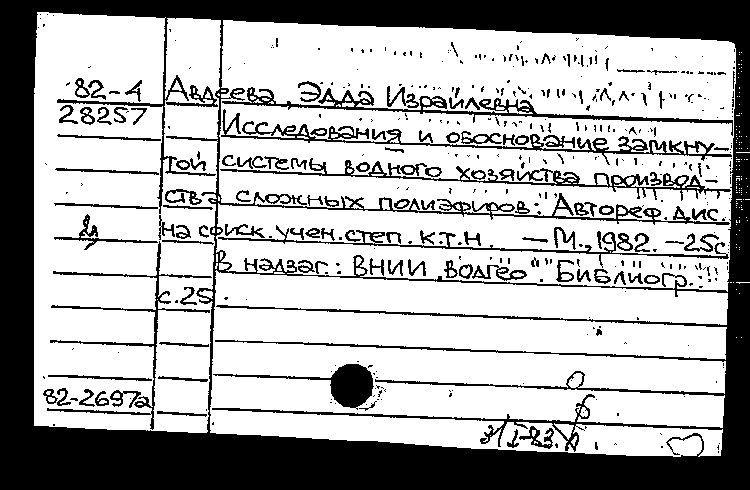 82-4 Авдеева, Эдда Израилевна
28257 Исследования и обоснование замкну-
той системы водного хозяйства производ-
ства сложных полиэфиров: Автореф. дис.
на соиск. учен. степ. к.т.н. — М., 1982. — 25с
В надзаг.: ВНИИ "Водгео". Библиогр.:
с. 25.
82-2697а
3/I-83.